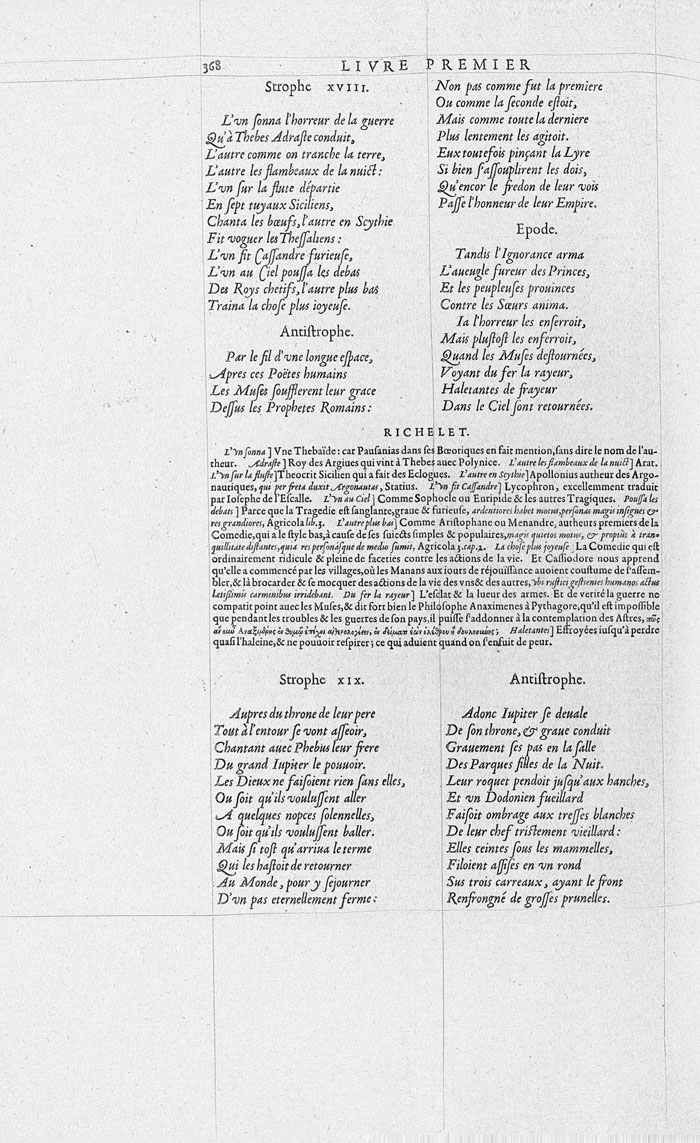 368
LIVRE PREMIER
Strophe XVIII.
L'vn ſonna l'horreur de la guerre
Qu'à Thebes Adraſte conduit,
L'autre comme on tranche la terre,
L'autre les flambeaux de la nuict:
L'vn ſur la flute départie
En ſept tuyaux Siciliens,
Chanta les bœufs, l'autre en Scythie
Fit voguer les Theſſaliens:
L'vn fit Caſſandre furieuſe,
L'vn au Ciel pouſſa les debas
Des Roys chetifs, l'autre plus bas
Traina la choſe plus ioyeuſe.
Antiſtrophe.
Par le fil d'vne longue eſpace,
Apres ces Poëtes humains
Les Muſes ſoufflerent leur grace
Deſſus les Prophetes Romains:
Non pas comme fut la premiere
Ou comme la ſeconde eſtoit,
Mais comme toute la derniere
Plus lentement les agitoit.
Eux toutefois pinçant la Lyre
Si bien ſ'aſſouplirent les dois,
Qu'encor le fredon de leur vois
Paſſe l'honneur de leur Empire.
Epode.
Tandis l'Ignorance arma
L'aueugle fureur des Princes,
Et les peupleuſes prouinces
Contre les Sœurs anima.
Ia l'horreur les enſerroit,
Mais pluſtoſt les enferroit,
Quand les Muſes deſtournées,
Voyant du fer la rayeur,
Haletantes de frayeur
Dans le Ciel ſont retournées.
RICHELET.
L'vn ſonna ] Vne Thebaïde: car Pauſanias dans ſes Bœotiques en fait mention, ſans dire le nom de l'au-
theur. Adraſte ] Roy des Argiues qui vint à Thebes auec Polynice. L'autre les flambeaux de la nuict ] Arat.
L'vn ſur la fluſte ] Theocrit Sicilien qui a fait des Eclogues. L'autre en Scythie ] Apollonius autheur des Argo-
nautiques, qui per freta duxit Argonautas, Statius. L'vn fit Caſſandre ] Lycophron, excellemment traduit
par Ioſephe de l'Eſcalle. L'vn au Ciel ] Comme Sophocle ou Euripide & les autres Tragiques. Pouſſa les
debats ] Parce que la Tragedie eſt ſanglante, graue & furieuſe, ardentiores habet motus, perſonas magis inſignes &
res grandiores, Agricola lib. 3. L'autre plus bas ] Comme Ariſtophane ou Menandre, autheurs premiers de la
Comedie, qui a le ſtyle bas, à cauſe de ſes ſuiects ſimples & populaires, magis quietos motus, & propius à tran-
quillitate diſtantes, quia res perſonáſque de medio ſumit, Agricola 3. cap. 2. La choſe plus ioyeuſe ] La Comedie qui eſt
ordinairement ridicule & pleine de faceties contre les actions de la vie. Et Caſſiodore nous apprend
qu'elle a commencé par les villages, où les Manans aux iours de réjouïſſance auoient couſtume de ſ'aſſem-
bler, & là brocarder & ſe mocquer des actions de la vie des vns & des autres, vbi ruſtici geſtientes humanos actus
lætiſſimis carminibus irridebant. Du fer la rayeur ] L'eſclat & la lueur des armes. Et de verité la guerre ne
compatit point auec les Muſes, & dit fort bien le Philoſophe Anaximenes à Pythagore, qu'il eſt impoſſible
que pendant les troubles & les guerres de ſon pays, il puiſſe ſ'addonner à la contemplation des Aſtres,
Haletantes ] Effroyées iuſqu'à perdre
quaſi l'haleine, & ne pouuoir reſpirer; ce qui aduient quand on ſ'enfuit de peur.
Strophe XIX.
Aupres du throne de leur pere
Tout à l'entour ſe vont aſſeoir,
Chantant auec Phebus leur frere
Du grand Iupiter le pouuoir.
Les Dieux ne faiſoient rien ſans elles,
Ou ſoit qu'ils vouluſſent aller
A quelques nopces ſolennelles,
Ou ſoit qu'ils vouluſſent baller.
Mais ſi toſt qu'arriua le terme
Qui les haſtoit de retourner
Au Monde, pour y ſejourner
D'vn pas eternellement ferme:
Antiſtrophe.
Adonc Iupiter ſe deuale
De ſon throne, & graue conduit
Grauement ſes pas en la ſalle
Des Parques filles de la Nuit.
Leur roquet pendoit juſqu'aux hanches,
Et vn Dodonien fueillard
Faiſoit ombrage aux treſſes blanches
De leur chef triſtement vieillard:
Elles ceintes ſous les mammelles,
Filoient aſſiſes en vn rond
Sus trois carreaux, ayant le front
Renfrongné de groſſes prunelles.